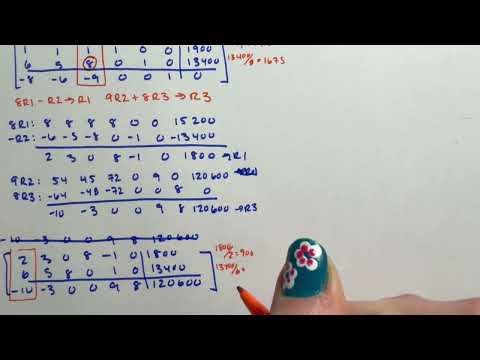 1 1 1 1 0 0 1900
6 5 8 0 1 0 13400 13400/8 = 1675
-8 -6 -9 0 0 1 0
8R1 - R2 → R1 9R2 + 8R3 → R3
8R1: 8 8 8 8 0 0 15200
-R2: -6 -5 -8 0 -1 0 -13400
2 3 0 8 -1 0 1800 → R1
9R2: 54 45 72 0 9 0 120600
8R3: -64 -48 -72 0 0 8 0
-10 -3 0 0 9 8 120600 → R3
-10 -3 0 0 9 8 120600
2 3 0 8 -1 0 1800 1800/2 = 900
6 5 8 0 1 0 13400 13400/6 =
-10 -3 0 0 9 8 120600